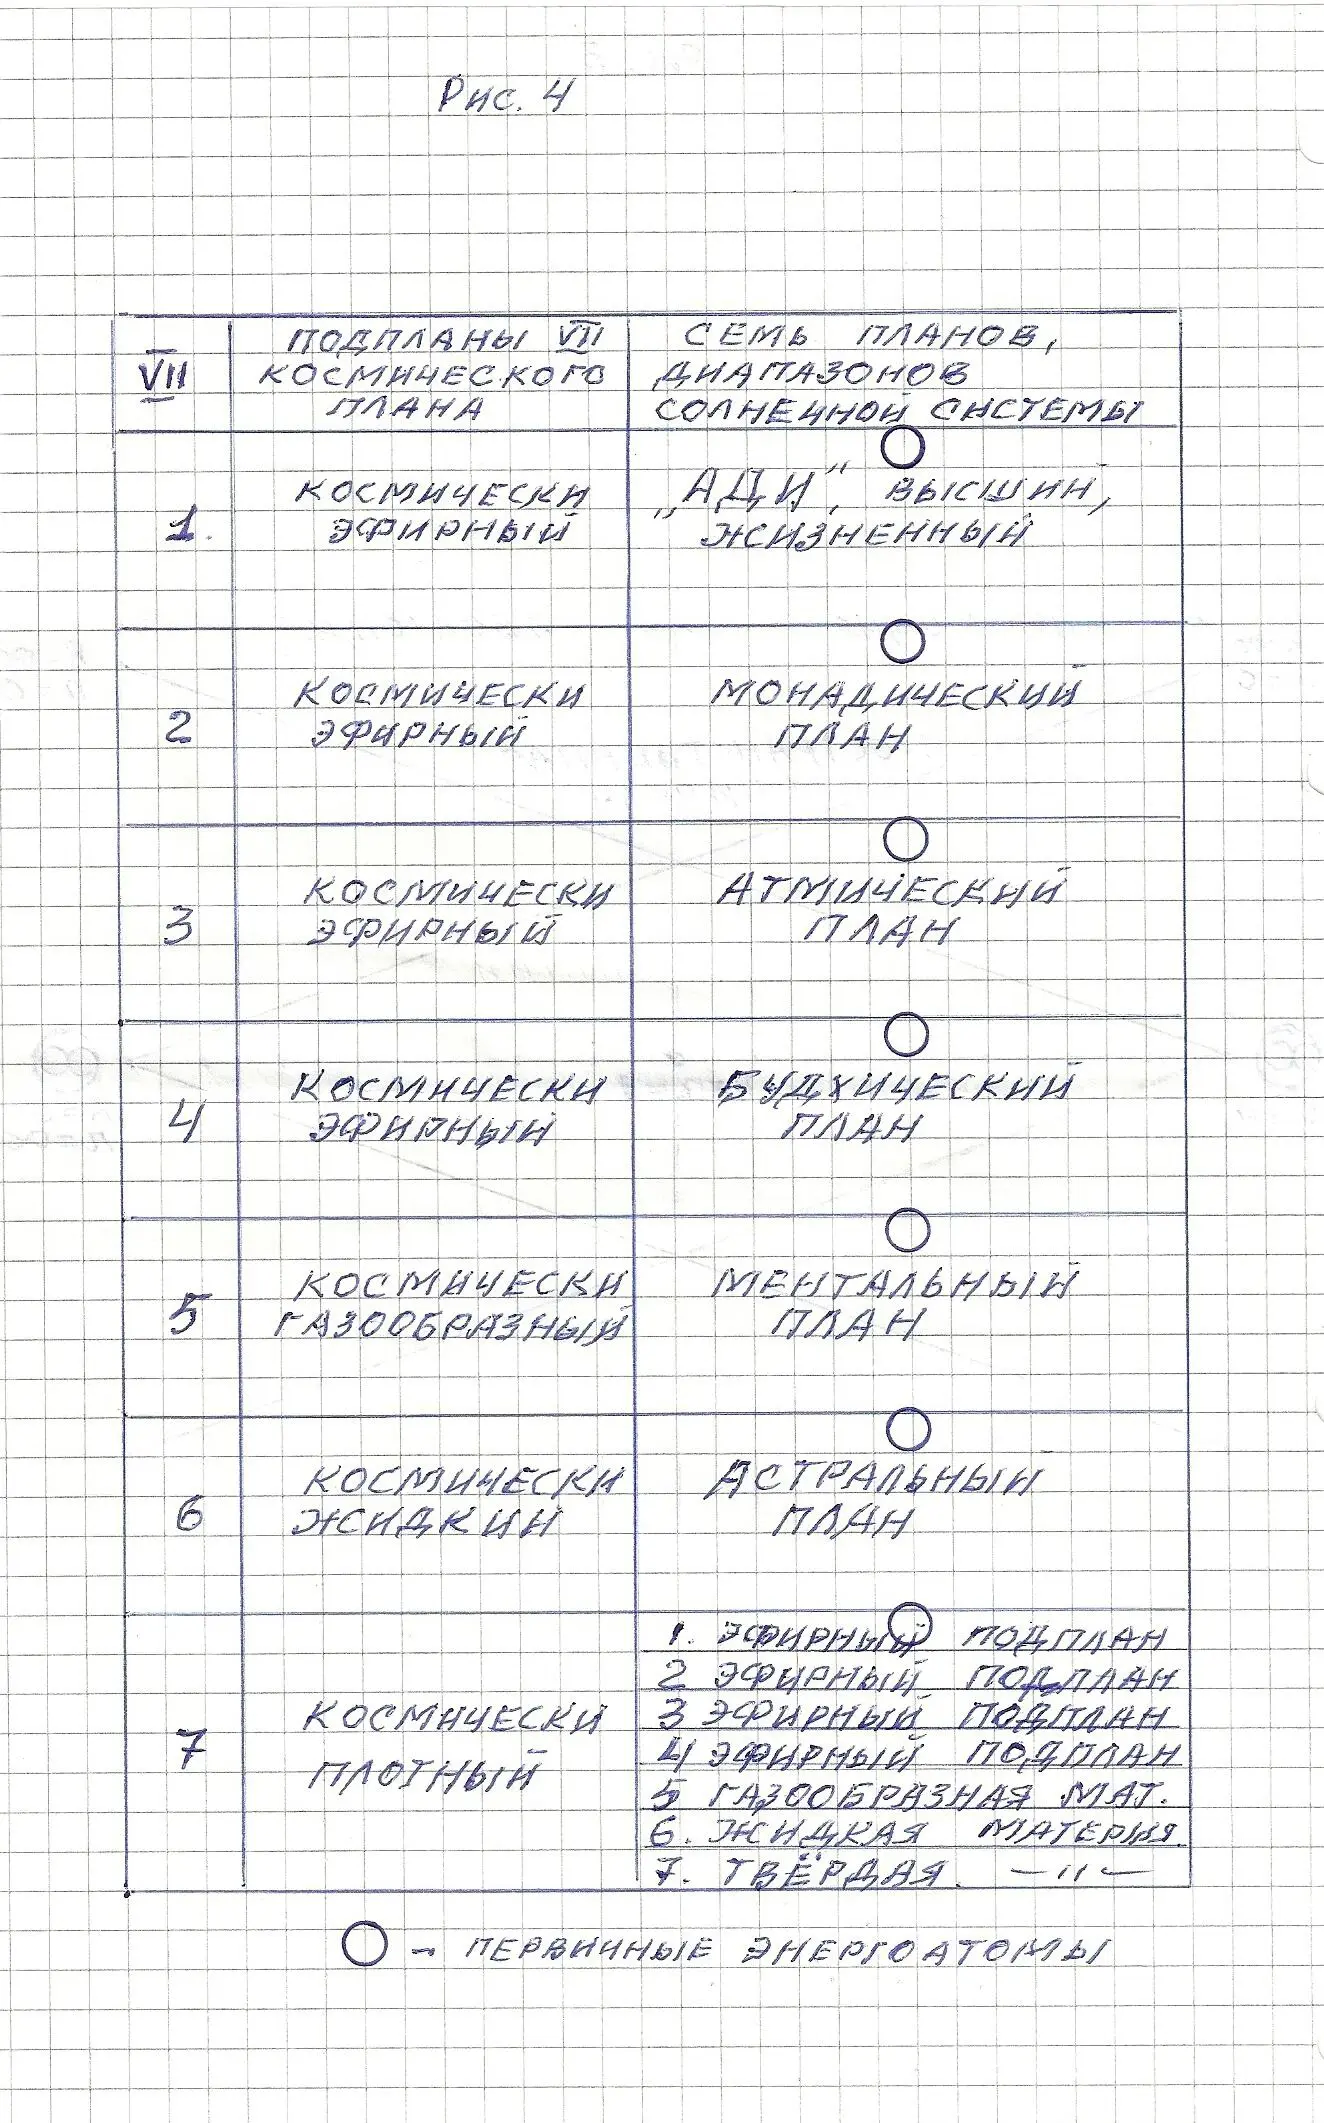 Рис. 4
VII
ПОДПЛАНЫ VII
КОСМИЧЕСКОГО
ПЛАНА
СЕМЬ ПЛАНОВ,
ДИАПАЗОНОВ
СОЛНЕЧНОЙ СИСТЕМЫ
1.
КОСМИЧЕСКИ
ЭФИРНЫЙ
„АДИ“, ВЫСШИЙ,
ЖИЗНЕННЫЙ
2
КОСМИЧЕСКИ
ЭФИРНЫЙ
МОНАДИЧЕСКИЙ
ПЛАН
3
КОСМИЧЕСКИ
ЭФИРНЫЙ
АТМИЧЕСКИЙ
ПЛАН
4
КОСМИЧЕСКИ
ЭФИРНЫЙ
БУДХИЧЕСКИЙ
ПЛАН
5
КОСМИЧЕСКИ
ГАЗООБРАЗНЫЙ
МЕНТАЛЬНЫЙ
ПЛАН
6
КОСМИЧЕСКИ
ЖИДКИЙ
АСТРАЛЬНЫЙ
ПЛАН
7
КОСМИЧЕСКИ
ПЛОТНЫЙ
1. ЭФИРНЫЙ ПОДПЛАН
2 ЭФИРНЫЙ ПОДПЛАН
3 ЭФИРНЫЙ ПОДПЛАН
4 ЭФИРНЫЙ ПОДПЛАН
5 ГАЗООБРАЗНАЯ МАТ.
6. ЖИДКАЯ МАТЕРИЯ.
7. ТВЁРДАЯ. —"—
– ПЕРВИЧНЫЕ ЭНЕРГОАТОМЫ